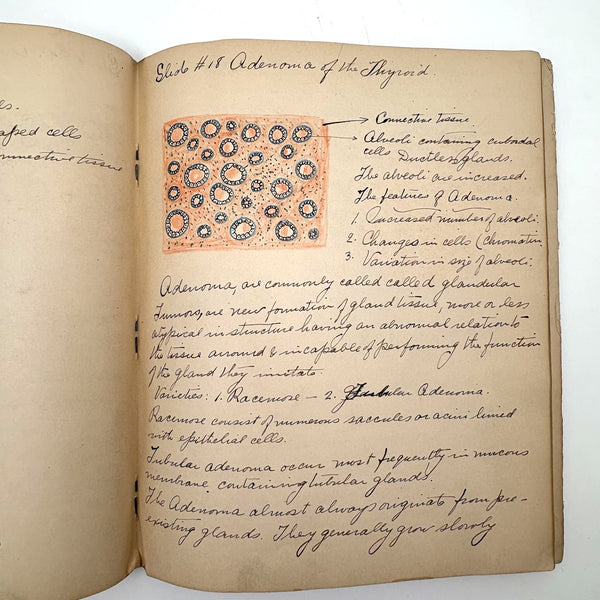 es.
aped cells
onnective tissue
Slide #18 Adenoma of the Thyroid.
Connective tissue
Alveoli containing cuboidal
cells Ductless glands.
The alveoli are increased.
The features of Adenoma.
1. Increased number of alveoli.
2. Changes in cells (chromatin
3. Variation in size of alveoli.
Adenoma, are commonly called called glandular
Tumors, are new formation of gland tissue, more or less
atypical in structure having an abnormal relation to
the tissue around & incapable of performing the function
of the gland they imitate.
Varieties: 1. Racemose – 2. Tubular Adenoma.
Racemose consist of numerous saccules or acini lined
with epithelial cells.
Tubular adenoma occur most frequently in mucous
membrane containing tubular glands.
The Adenoma almost always originate from pre-
existing glands. They generally grow slowly